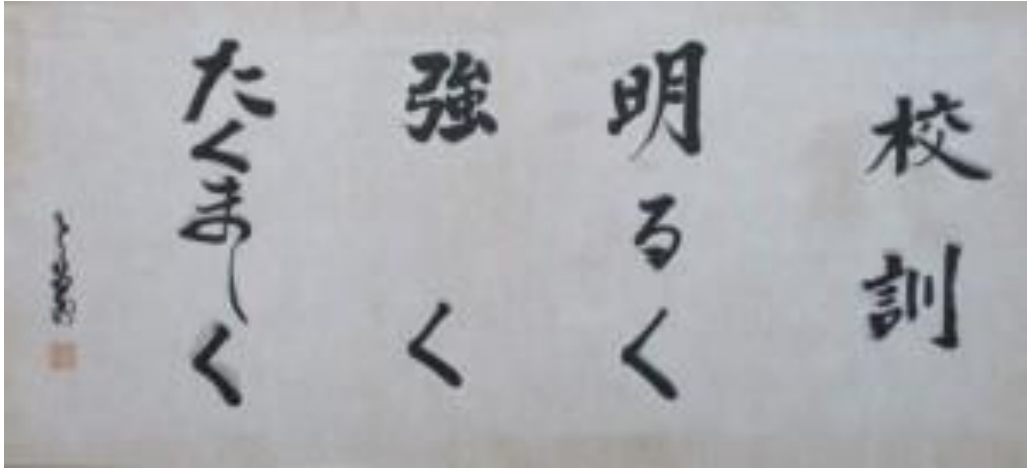 校訓
明るく
強く
たくましく